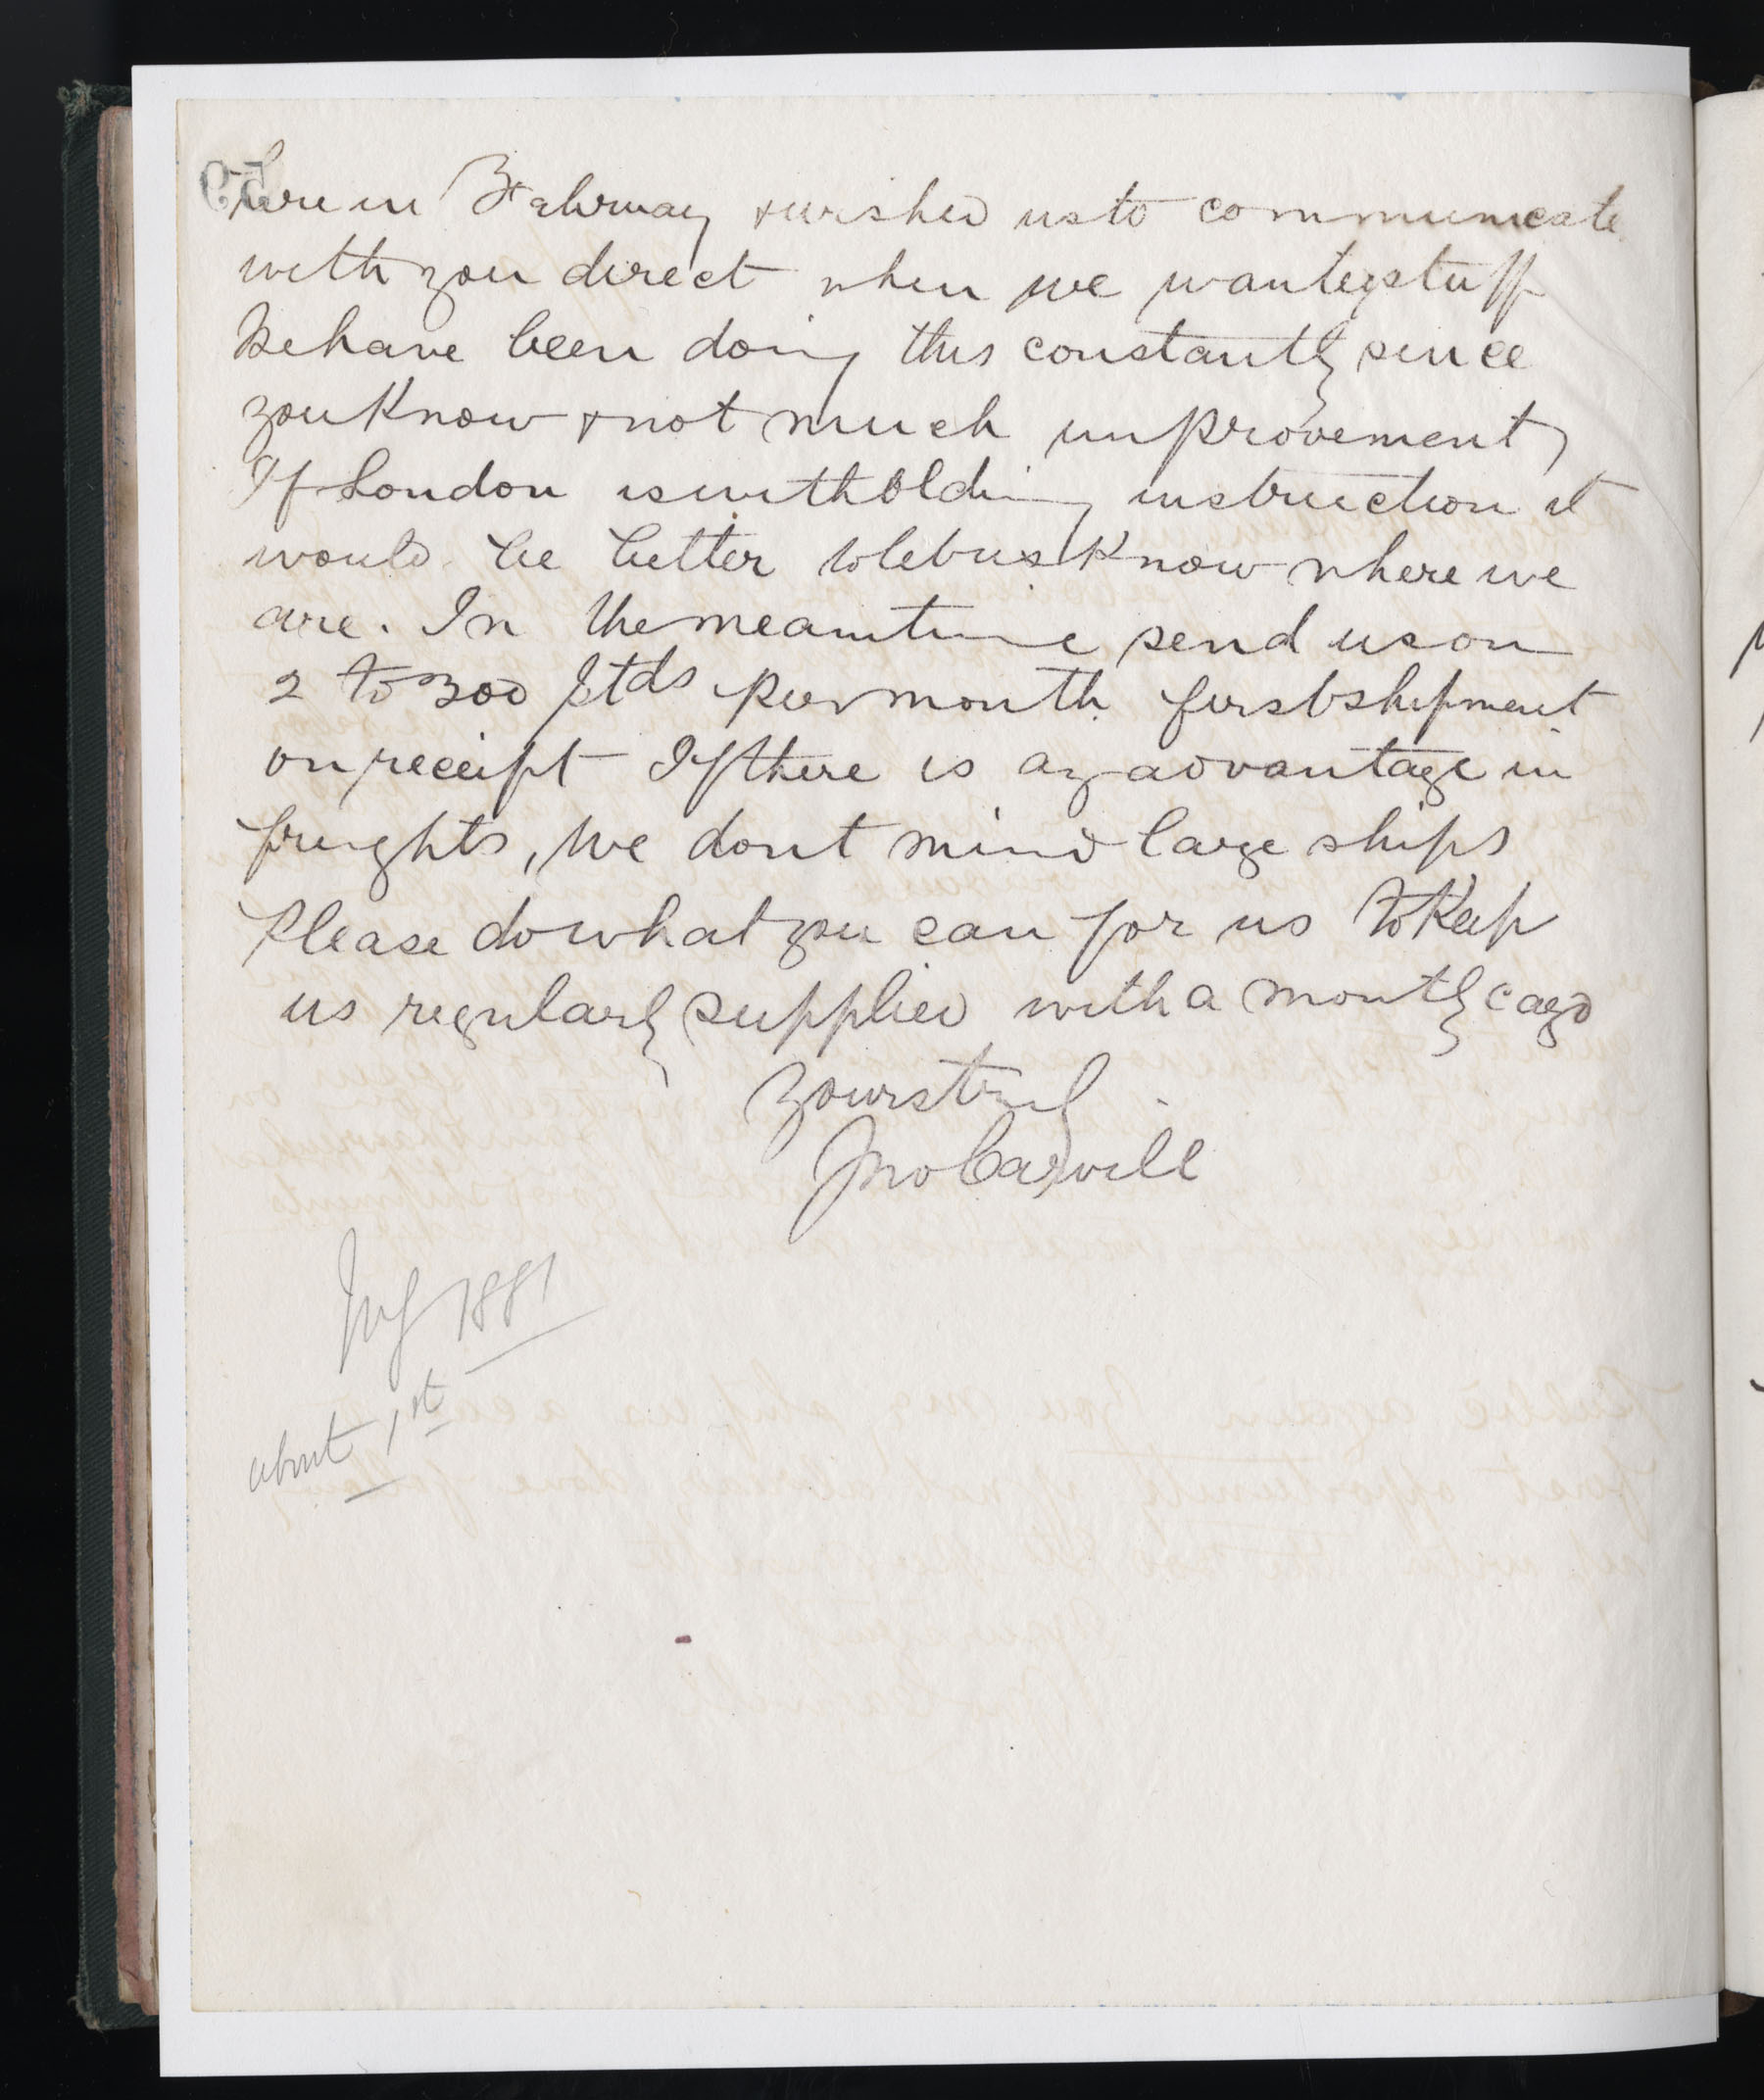 here in February & wished us to communicate
with you direct when we wanted stuff
We have been doing this constantly since
you know & not much improvement,
If London is witholding instruction it
would be better to let us know where we
are. In the meantime send us on
2 to 300 Stds per month first shipment
on receipt If there is any advantage in
freights, we dont mind large ships
Please do what you can for us to Keep
us regularly supplied with a monthly cargo
Yours truly
Jno Carvill
July 1881
about 1st